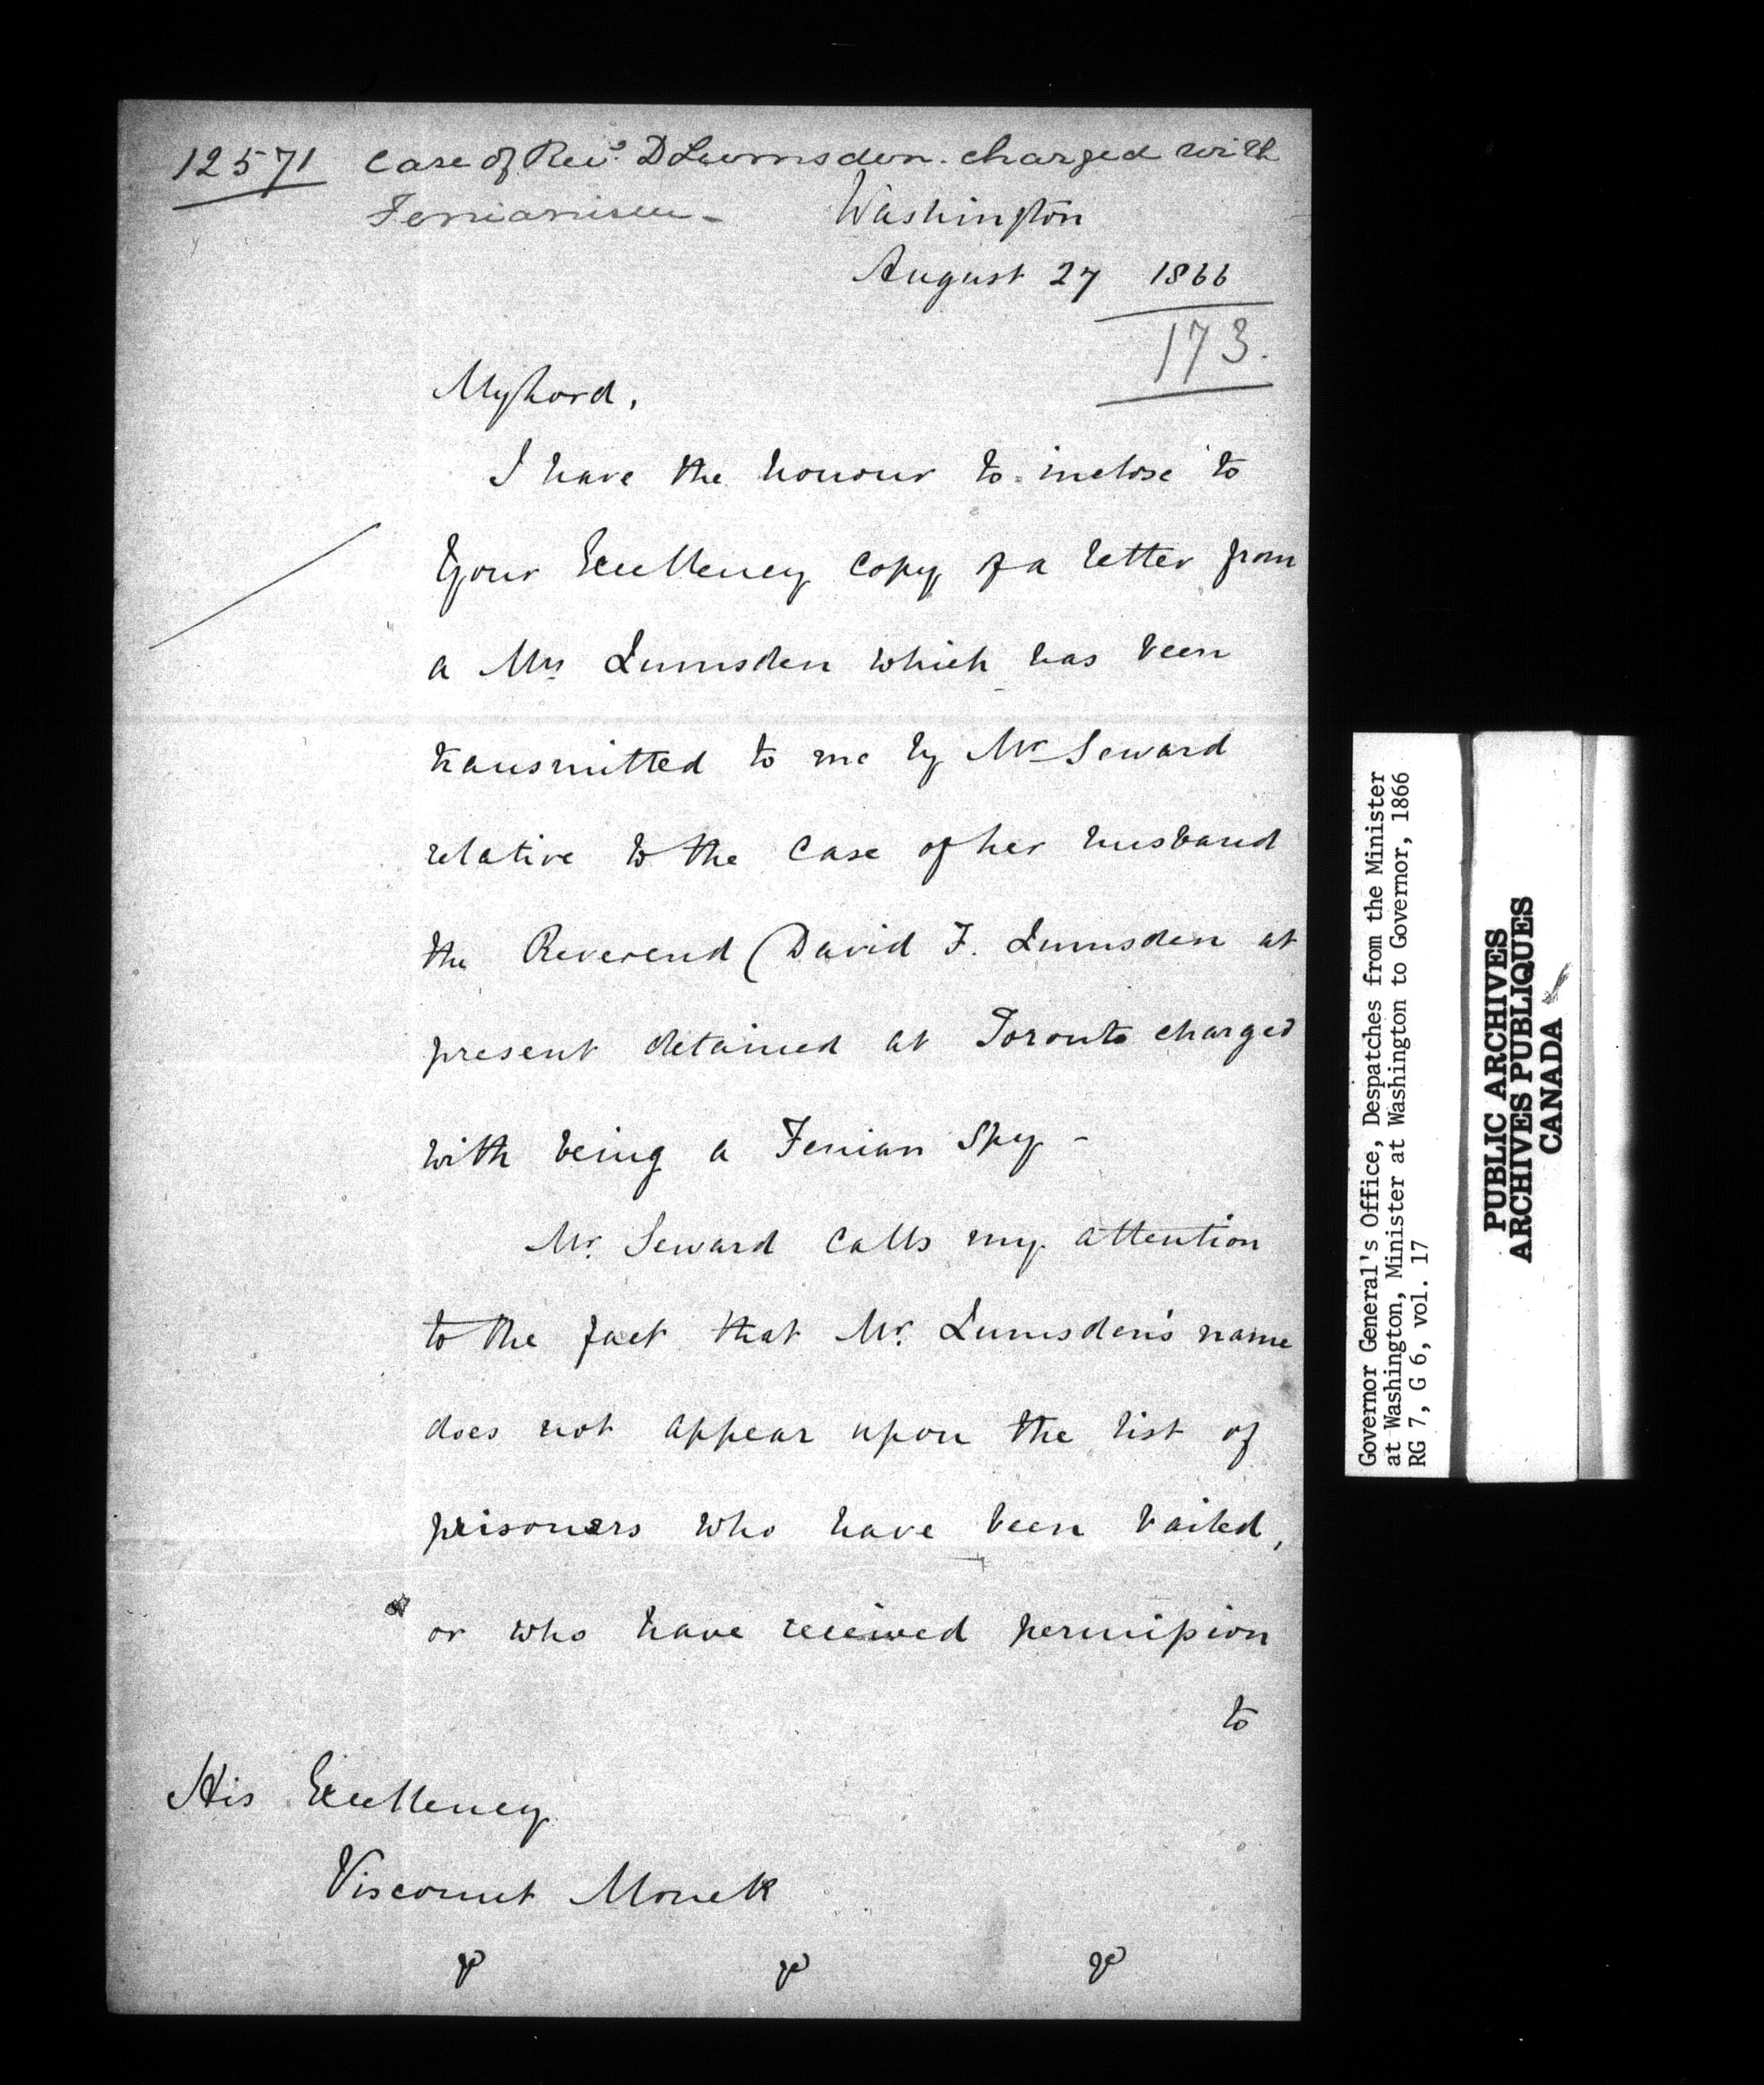 12571 Case of Revd. D Lumsden. charged with
Fenianism -
Washington
August 27 1866
173.
My Lord,
I have the honour to inclose to
Your Excellency copy of a letter from
a Mrs Lumsden which has been
transmitted to me by Mr Seward
relative to the case of her husband
the Reverend David F. Lumsden at
present detained at Toronto charged
with being a Fenian Spy -
Mr. Seward calls my attention
to the fact that Mr. Lumsden's name
does not appear upon the list of
prisoners who have been bailed,
or who have received permission
to
His Excellency
Viscount Monck
Governor General's Office, Despatches from the Minister
at Washington, Minister at Washington to Governor, 1866
RG 7, G 6, vol. 17
PUBLIC ARCHIVES
ARCHIVES PUBLIQUES
CANADA